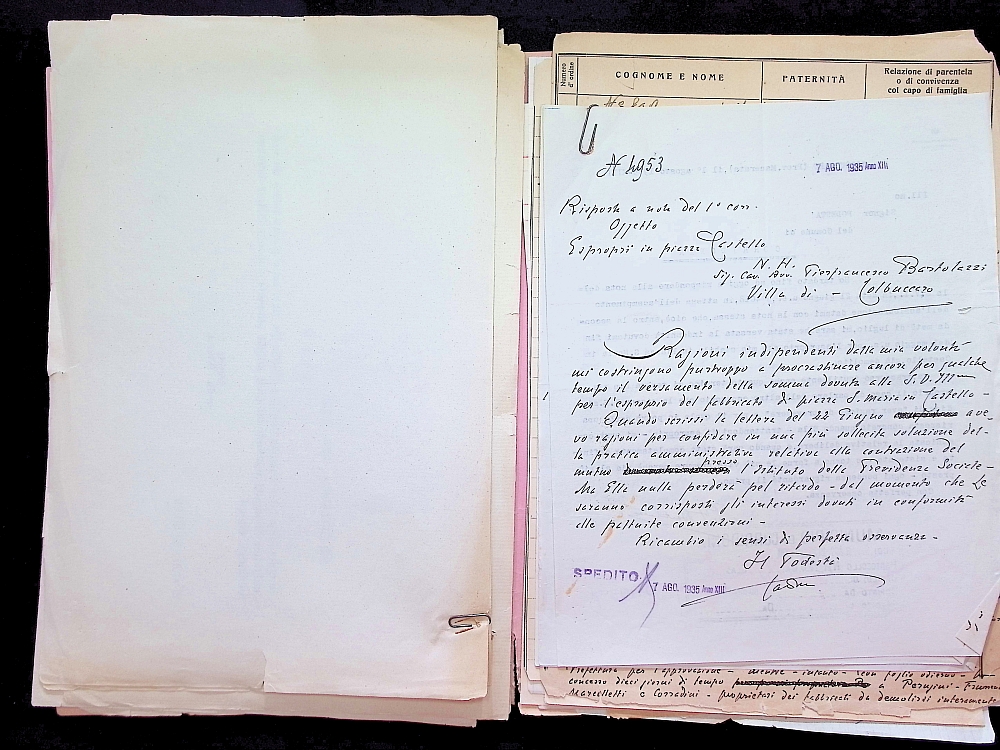 Numero d'ordine
COGNOME E NOME
PATERNITÀ
Relazione di parentela
o di convivenza
col capo di famiglia
N 4953
7 AGO. 1935 Anno XIII
Risposta a nota del 1° corr.
Oggetto
Espropri in piazza Castello
N. H.
Sig. Cav. Avv. Pierfrancesco Bartolazzi
Villa di - Colbuccaro
Ragioni indipendenti dalla mia volontà
mi costringono purtroppo a procrastinare ancora per qualche
tempo il versamento della somma dovuta alla S.V. Ill
per l'esproprio del fabbricato di piazza S. Maria in Castello -
Quando scrissi la lettera del 22 Giugno ave-
vo ragioni per confidare in una più sollecita soluzione del-
la pratica amministrativa relativa alla contrazione del
mutuo presso l'Istituto della Previdenza Sociale -
Ma Ella nulla perderà pel ritardo - dal momento che Le
saranno corrisposti gli interessi dovuti in conformità
alle pattuite convenzioni -
Ricambio i sensi di perfetta osservanza -
Il Podestà
SPEDITO
7 AGO. 1935 Anno XIII
Prefettura per l'approvazione - mentre - intanto - con foglio odierno -
concesso dieci giorni di tempo a Perugini -
Marcelletti e Corradini - proprietari dei fabbricati da demolirsi interamente